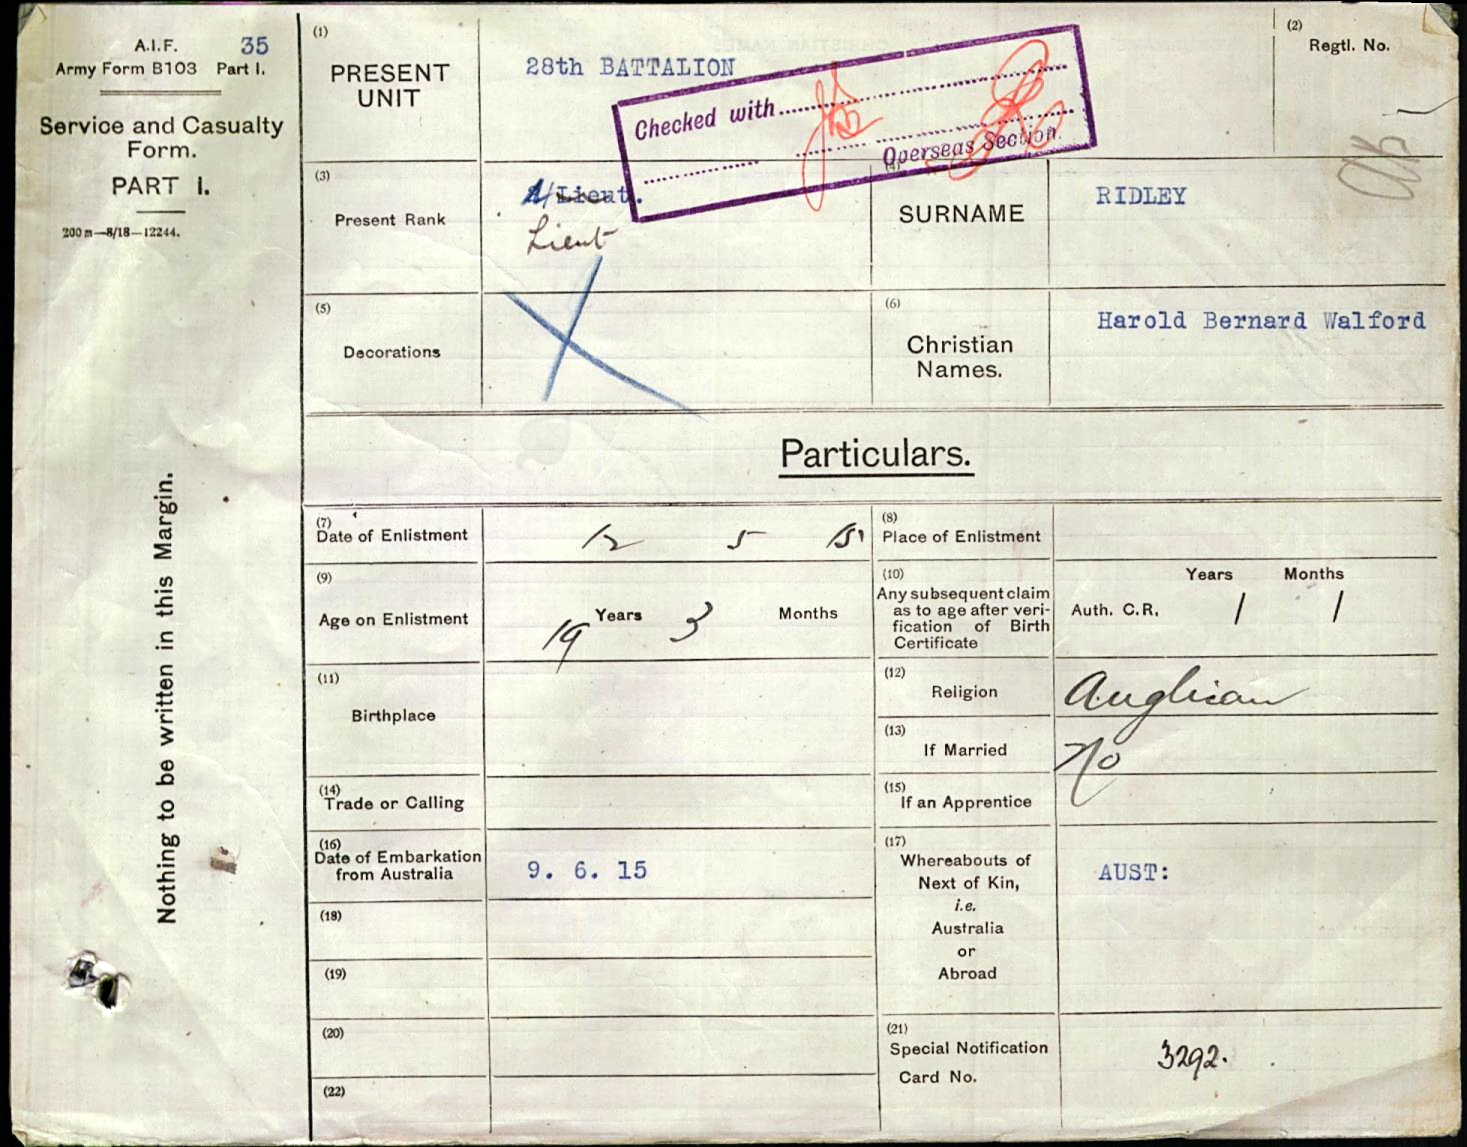 A.I.F. 35
Army Form B103 Part I.
Service and Casualty
Form.
PART I.
200 m—8/18—12244.
Nothing to be written in this Margin.
(1)
PRESENT
UNIT
28th BATTALION
Checked with
Overseas Section.
(2)
Regtl. No.
(3)
Present Rank
2/Lieut.
Lieut
(4)
SURNAME
RIDLEY
(5)
Decorations
(6)
Christian
Names.
Harold Bernard Walford
Particulars.
(7)
Date of Enlistment
12 5 15
(8)
Place of Enlistment
(9)
Age on Enlistment
19 Years 3 Months
(10)
Any subsequent claim
as to age after veri-
fication of Birth
Certificate
Years Months
Auth. C.R. / /
(11)
Birthplace
(12)
Religion
Anglican
(13)
If Married
No
(14)
Trade or Calling
(15)
If an Apprentice
(16)
Date of Embarkation
from Australia
9. 6. 15
(17)
Whereabouts of
Next of Kin,
i.e.
Australia
or
Abroad
AUST:
(18)
(19)
(20)
(21)
Special Notification
Card No.
3292.
(22)